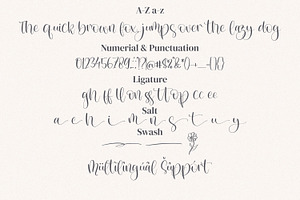 A-Z a-z
The quick brown fox jumps over the lazy dog
Numerial & Punctuation
0123456789
Ligature
gh ff ll on ss tt op cc ee
Salt
a e h i m n s t u y
Swash
Multilingual Support